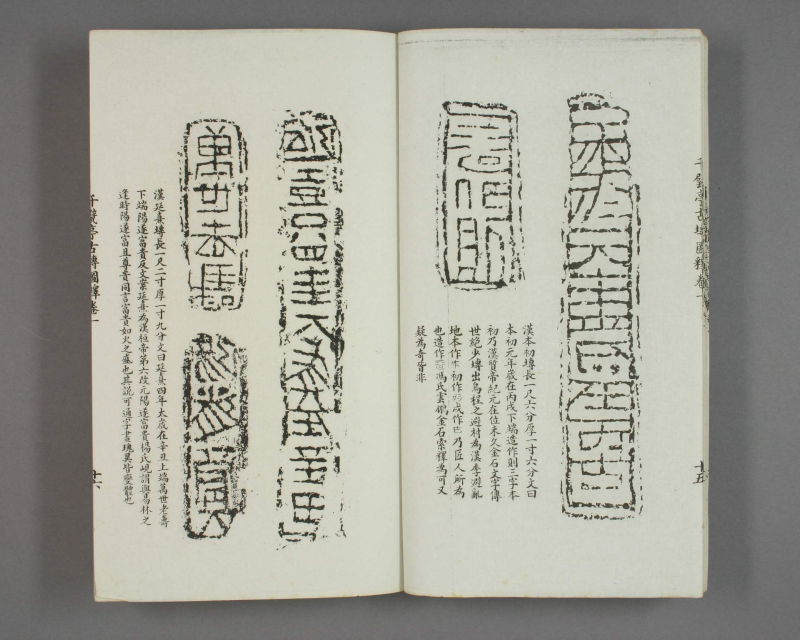 千甓亭古塼圖釋卷一
漢本初塼長一尺六分厚一寸六分文曰
本初元年歲在丙戌下端造作則三字本
初乃漢質帝紀元在位未久金石文字傳
世絕少塼出烏程之避村為漢季避亂
地本作初作戌作乃匠人所為
也造作馮氏雲鵬金石索釋為可又
疑為奇皆非
十五
萬世老壽
漢延熹塼長一尺二寸厚一寸九分文曰延熹四年太歲在辛丑上端萬世老壽
下端陽遂富貴反文案延熹為漢桓帝第六改元陽遂富貴楊氏峴謂與易林之
逢時陽遂富且尊音同言富貴如火之
也其說可通字畫瑰異皆變體也
千甓亭古塼圖釋卷一
十六